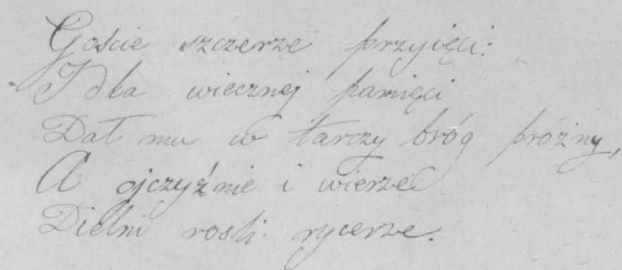 Goście szczerze przyięci:
I dla wiecznej pamięci
Dał mu w tarczy bróg próżny,
A ojczyźnie i wierze
Dzielni rośli rycerze.